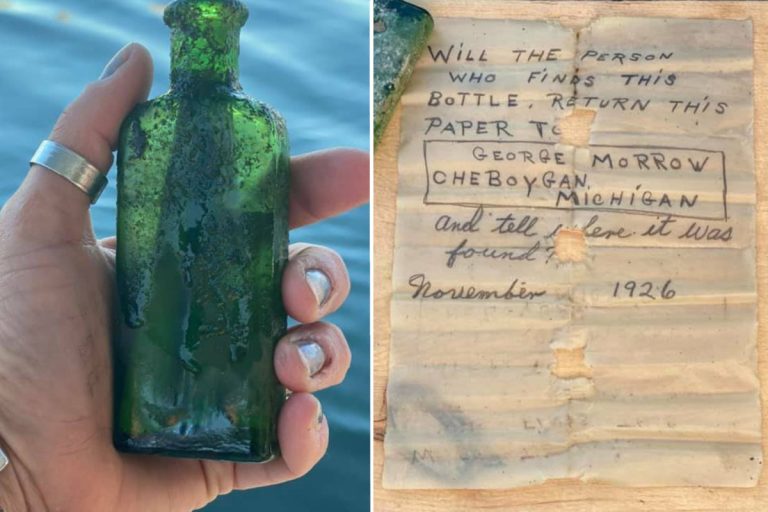 WiLL THE PERSON
WHO FiNDS THiS
BOTTLE, RETURN THiS
PAPER TO
GEORGE MORROW
CHEBOYGAN,
MiCHIGAN
and tell where it was
found?
November 1926